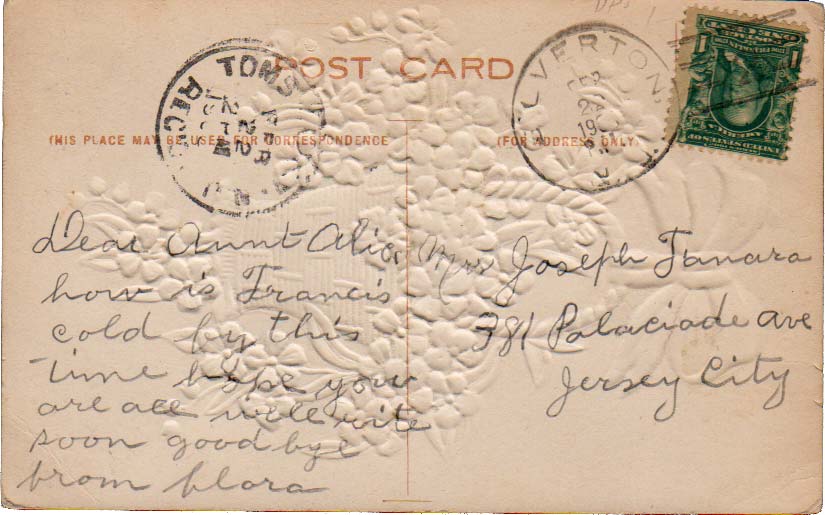 POST CARD
THIS PLACE MAY BE USED FOR CORRESPONDENCE
(FOR ADDRESS ONLY)
TOMS RIVER
REC'D
N.J.
SILVERTON,
22
19
Dear Aunt Alice
how is Francis
cold by this
time hope you
are all well rite
soon good bye
from flora
Mrs Joseph Tamara
381 Palaciade ave
Jersey City